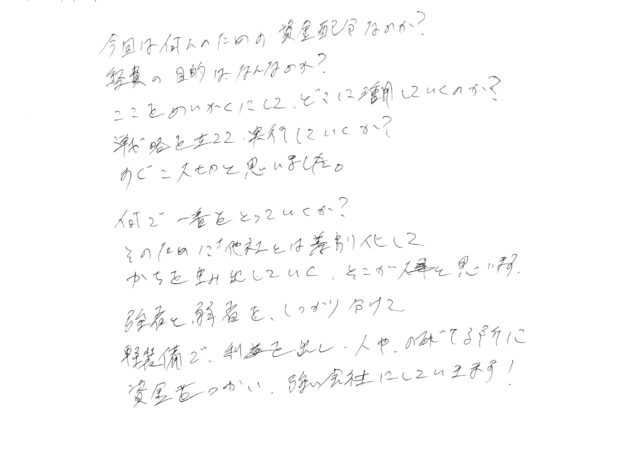 今回は何んのための資金配分なのか?
経費の目的はなんなのか?
ここをめいかくにして、どこに活用していくのか?
戦略を立てて、実行していくか?
のがこ大切と思いました。
何で一番をとっていくか?
そのためには他社とは差別化して
かちを生み出していく、そこが大事と思います。
強者と、弱者を、しっかり分けて
軽装備で、利益を出し、人や、のばてる所に
資金をつかい、強い会社にしていきます!